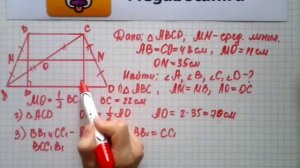 Megabotanik
Дано: △ABCD, MN-сред. линия.
AB=CD=48см, MO=11см
ON=35см
Найти: ∠A, ∠B, ∠C, ∠D-?
B
C
M
N
O
D
B₁
1) △ABC, AM=MB, AO=OC
MO=½BC BC=22см
2) △ACD ½AD AD=2·35=70см
3) BB₁ CC₁- BB₁=CC₁
BCC₁B₁